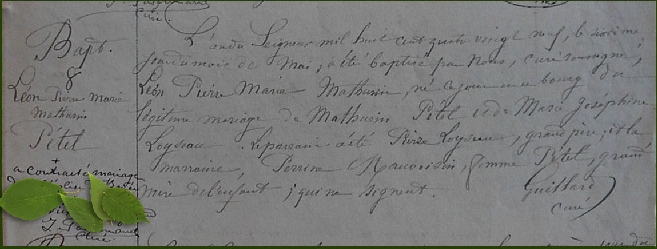 Bapt.
8
Léon Pierre Marie
Mathurin
Pétel
+
a contracté mariage
L'an du Seigneur mil huit cent quatre vingt neuf, le
jour du mois de Mai, a été baptisé par Nous, curé soussigné,
Léon Pierre Marie Mathurin, né ce jour en ce bourg du
légitime mariage de Mathurin Pétel et de Marie Joséphine
Loyseau. Le parrain a été Pierre Loyseau, grand père, et la
marraine, Perrine femme Pétel, grand
mère de l'enfant, qui ne signent. Guittard
curé